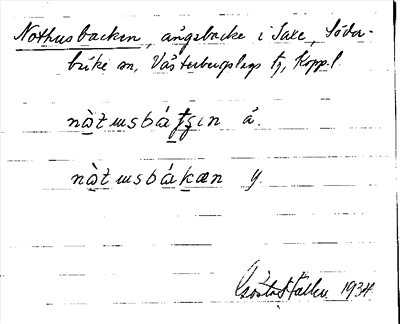 Nothusbacken, ängsbacke i Saxe, Söder-
bärke sn, Västerbergslags tg, Kopp.l.
nàtusbátʒin ä.
nàtusbákæn y.
Gösta Fallen 1934.